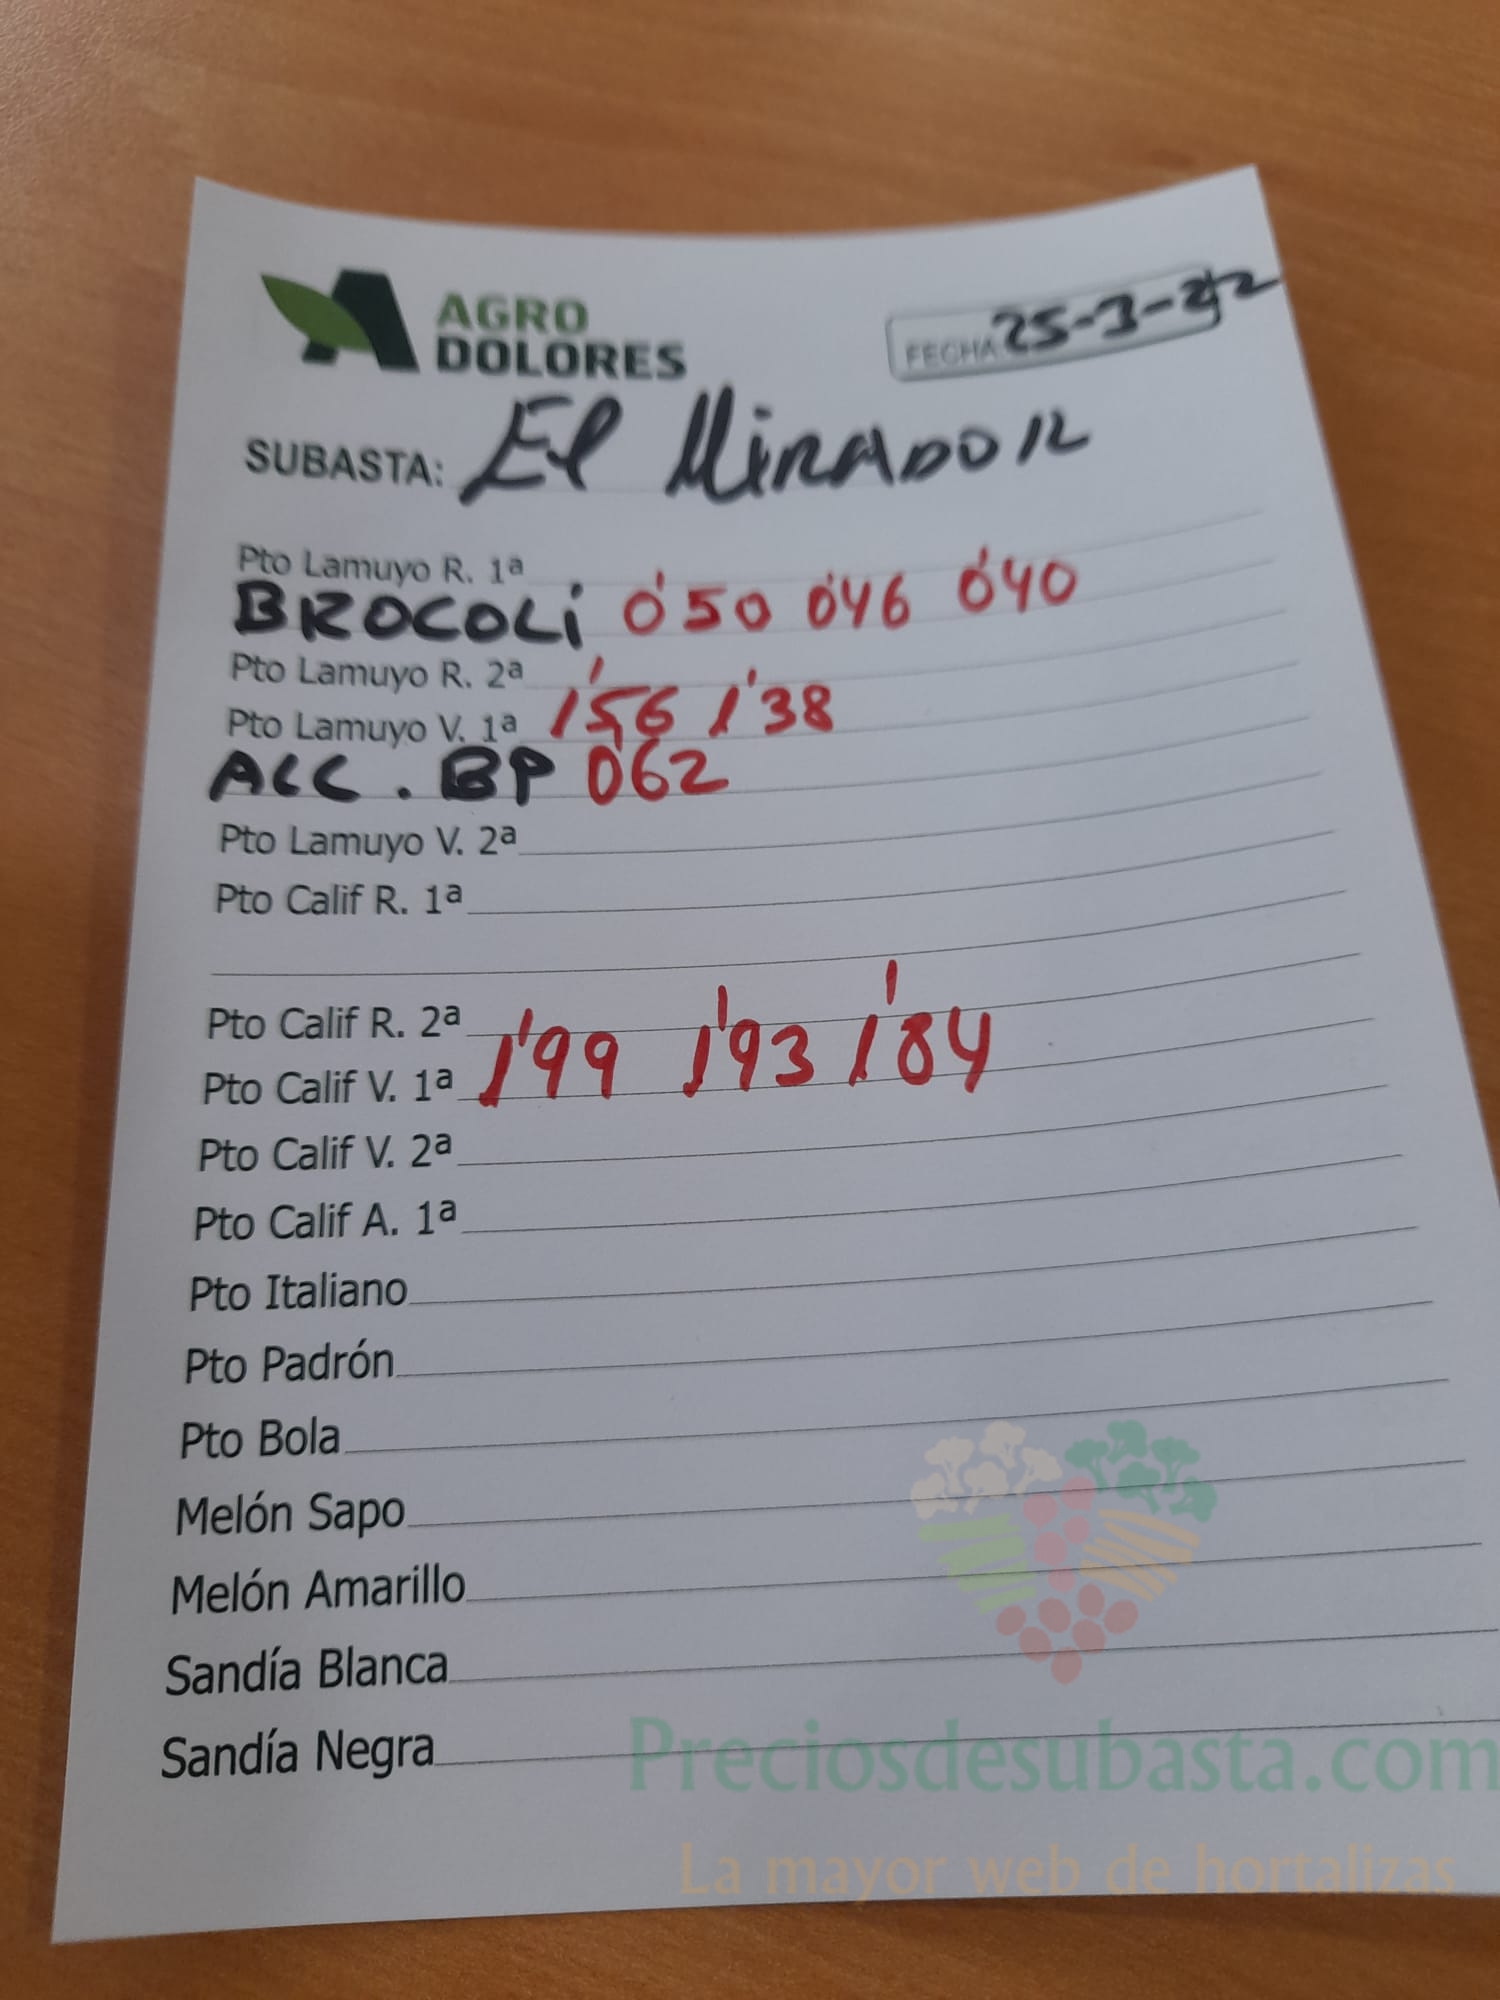 AGRO
DOLORES
FECHA 25-3-22
SUBASTA: El MIRADOR
Pto Lamuyo R. 1ª
BROCOLi 0'50 0'46 0'40
Pto Lamuyo R. 2ª
Pto Lamuyo V. 1ª 1'56 1'38
ALC . BP 0'62
Pto Lamuyo V. 2ª
Pto Calif R. 1ª
Pto Calif R. 2ª
Pto Calif V. 1ª 1'99 1'93 1'84
Pto Calif V. 2ª
Pto Calif A. 1ª
Pto Italiano
Pto Padrón
Pto Bola
Melón Sapo
Melón Amarillo
Sandía Blanca
Sandía Negra
Preciosdesubasta.com
La mayor web de hortalizas